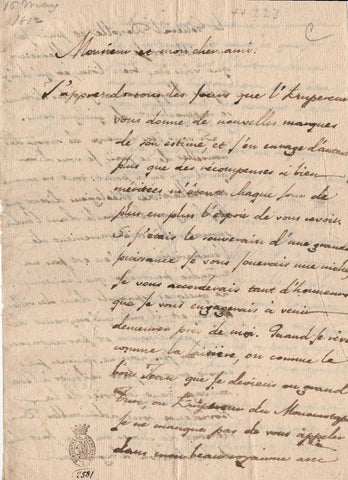 15 May
1812
44 228
C
Monsieur et mon cher ami.
J'apprends tous les jours que l'Empereur
vous donne de nouvelles marques
de son estime, et j'en enrage d'autant
plus que des recompenses si bien
méritées m'ôtent chaque jour de
plus en plus l'espoir de vous revoir.
Si j'étais le souverain d'une grande
puissance je vous jouerais une
Je vous accorderais tant d'honneurs
que je vous engagerais à venir
demeurer près de moi. Quand je rêve
comme la laitière, ou comme le
bon Jean que je deviens ou grand
Turc, ou Empereur du
Je ne manque pas de vous appeler
dans mon beau royaume avec
2581